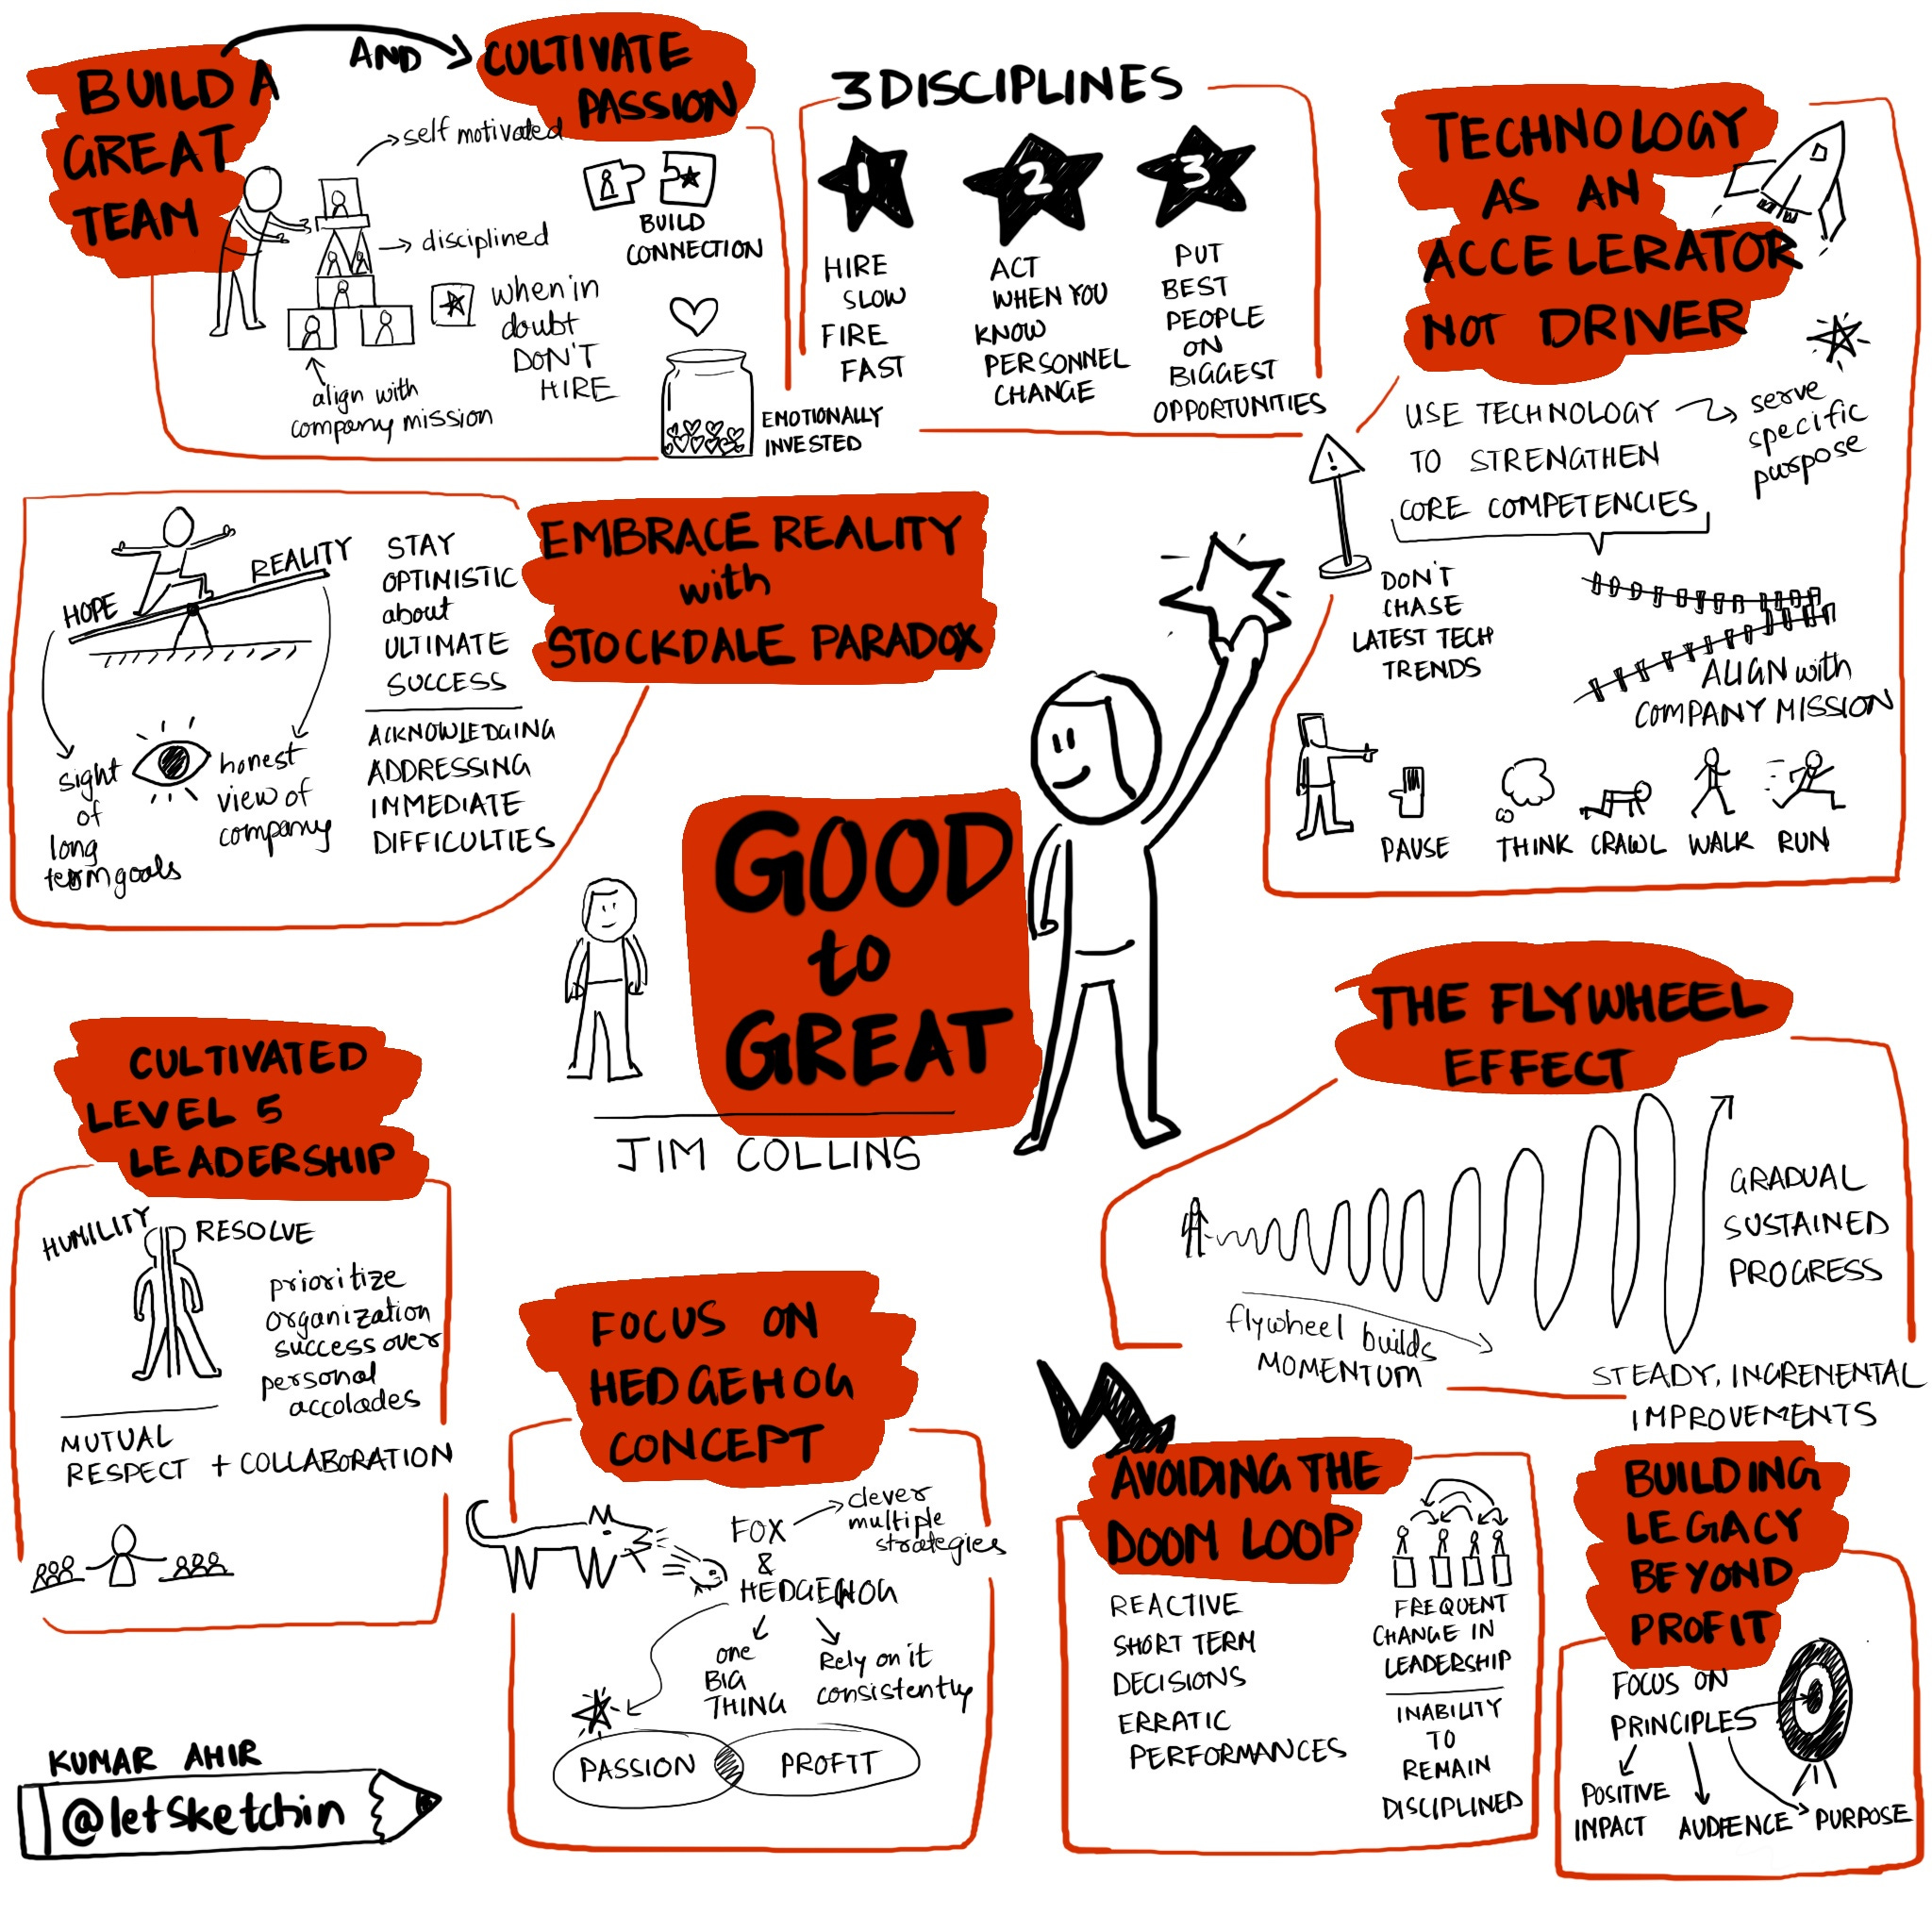 BUILD A
GREAT
TEAM
AND
CULTIVATE
PASSION
self motivated
disciplined
when in
doubt
DON'T
HIRE
align with
company mission
BUILD
CONNECTION
EMOTIONALLY
INVESTED
3 DISCIPLINES
1
HIRE
SLOW
FIRE
FAST
2
ACT
WHEN YOU
KNOW
PERSONNEL
CHANGE
3
PUT
BEST
PEOPLE
ON
BIGGEST
OPPORTUNITIES
TECHNOLOGY
AS AN
ACCELERATOR
NOT DRIVER
USE TECHNOLOGY
TO STRENGTHEN
CORE COMPETENCIES
serve
specific
purpose
!
DON'T
CHASE
LATEST TECH
TRENDS
ALIGN with
COMPANY MISSION
PAUSE
THINK
CRAWL
WALK
RUN
EMBRACE REALITY
with
STOCKDALE PARADOX
HOPE
REALITY
STAY
OPTIMISTIC
about
ULTIMATE
SUCCESS
ACKNOWLEDGING
ADDRESSING
IMMEDIATE
DIFFICULTIES
sight
of
long
term goals
honest
view of
company
GOOD
to
GREAT
JIM COLLINS
CULTIVATED
LEVEL 5
LEADERSHIP
HUMILITY
RESOLVE
prioritize
organization
success over
personal
accolades
MUTUAL
RESPECT + COLLABORATION
THE FLYWHEEL
EFFECT
GRADUAL
SUSTAINED
PROGRESS
flywheel builds
MOMENTUM
STEADY, INCREMENTAL
IMPROVEMENTS
FOCUS ON
HEDGEHOG
CONCEPT
FOX
&
HEDGEHOG
clever
multiple
strategies
one
BIG
THING
Rely on it
consistently
PASSION
PROFIT
AVOIDING THE
DOOM LOOP
REACTIVE
SHORT TERM
DECISIONS
ERRATIC
PERFORMANCES
FREQUENT
CHANGE IN
LEADERSHIP
INABILITY
TO
REMAIN
DISCIPLINED
BUILDING
LEGACY
BEYOND
PROFIT
FOCUS ON
PRINCIPLES
POSITIVE
IMPACT
AUDIENCE
PURPOSE
KUMAR AHIR
@letsketchin